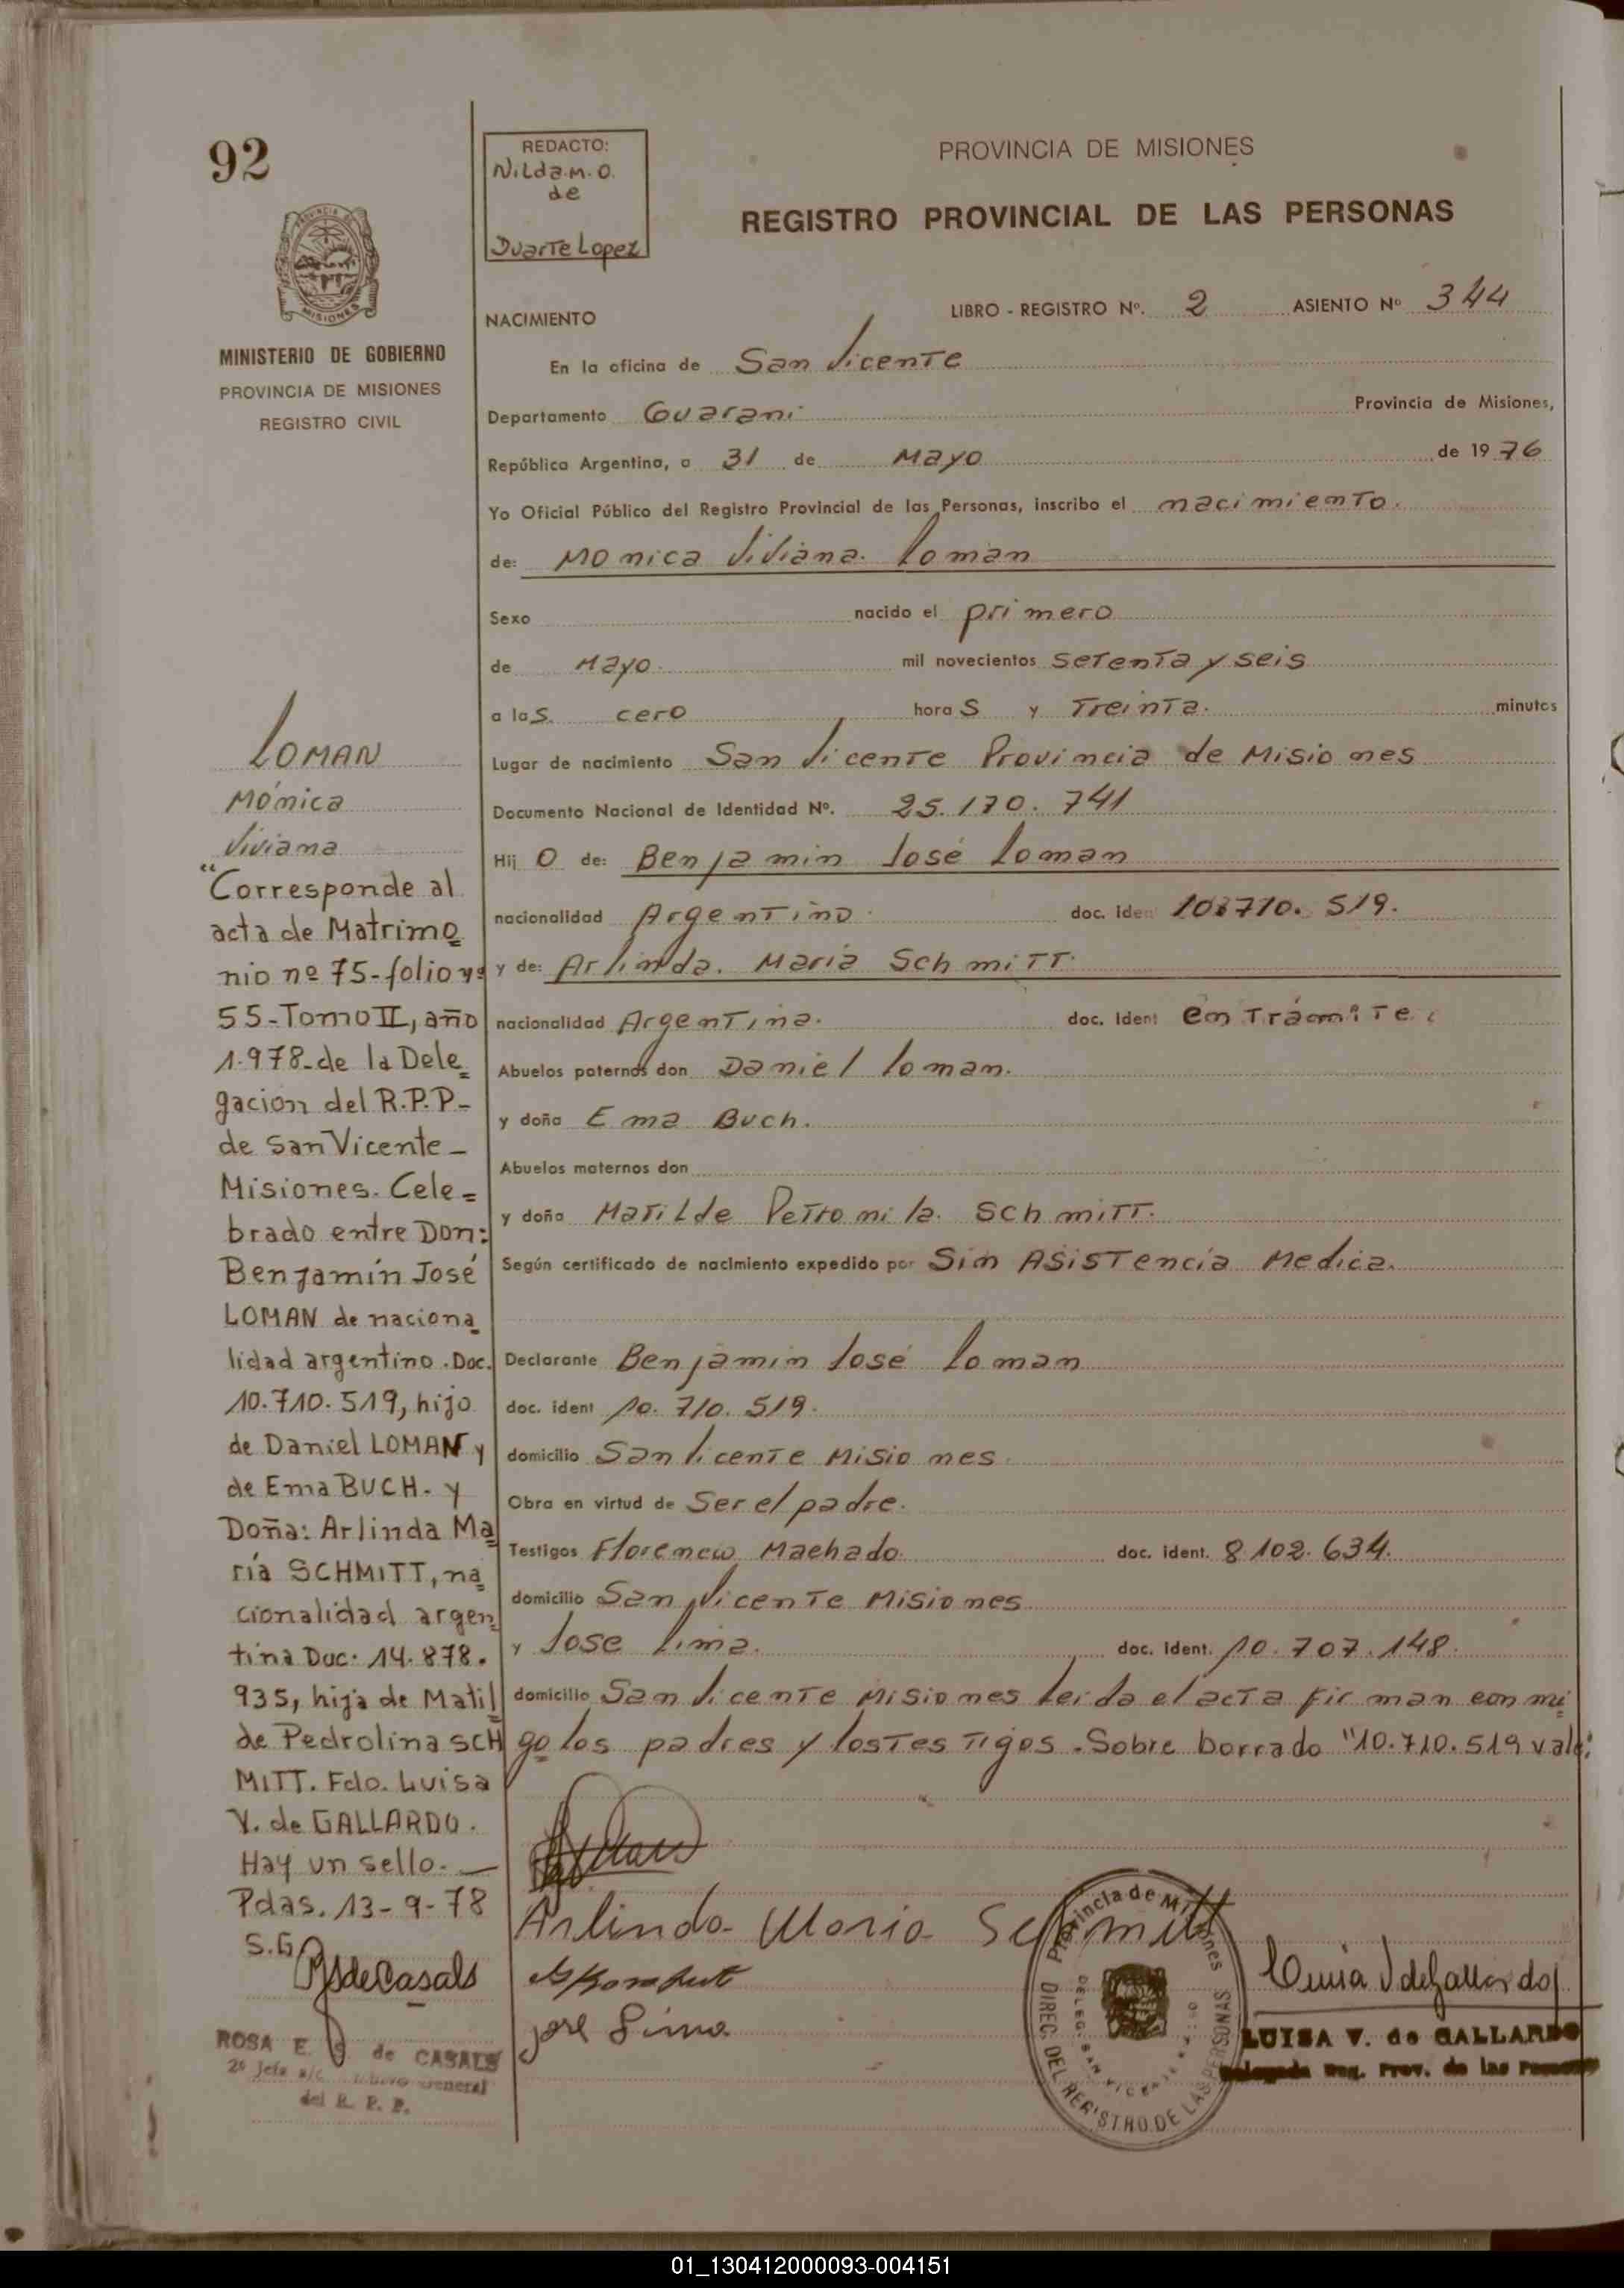 92
REDACTO:
Nilda.M.O.
de
Duarte Lopez
PROVINCIA DE MISIONES
REGISTRO PROVINCIAL DE LAS PERSONAS
MINISTERIO DE GOBIERNO
PROVINCIA DE MISIONES
REGISTRO CIVIL
NACIMIENTO
LIBRO - REGISTRO Nº. 2 ASIENTO Nº 344
En la oficina de San Vicente
Departamento Guarani Provincia de Misiones,
República Argentina, a 31 de Mayo de 1976
Yo Oficial Público del Registro Provincial de las Personas, inscribo el nacimiento.
de: Monica Viviana. Loman
Sexo nacido el primero
de Mayo. mil novecientos setenta y seis
a las cero horas y Treinta. minutos
Lugar de nacimiento San Vicente Provincia de Misiones
Documento Nacional de Identidad Nº. 25.170.741
Hijo de: Benjamin José Loman
nacionalidad Argentino. doc. iden 10.710.519.
y de: Arlinda. Maria Schmitt.
nacionalidad Argentina. doc. ident en Trámite.
Abuelos paternos don Daniel Loman.
y doña Ema Buch.
Abuelos maternos don
y doña Matilde Petronila. Schmitt.
Según certificado de nacimiento expedido por Sin Asistencia Medica.
Declarante Benjamin José Loman
doc. ident 10.710.519.
domicilio San Vicente Misiones.
Obra en virtud de Ser el padre.
Testigos Florencio Machado. doc. ident. 8.102.634.
domicilio San Vicente Misiones
y Jose Lima. doc. ident. 10.707.148.
domicilio San Vicente Misiones Leida el acta firman conmi
go los padres y los Testigos. Sobre borrado "10.710.519 vale."
LOMAN
Mónica
Viviana
"Corresponde al
acta de Matrimo
nio nº 75-folio nº
55-Tomo II, año
1.978-de la Dele
gacion del R.P.P-
de San Vicente-
Misiones. Cele=
brado entre Don:
Benjamín José
LOMAN de naciona
lidad argentino. Doc.
10.710.519, hijo
de Daniel LOMAN y
de Ema BUCH. y
Doña: Arlinda Ma
ría SCHMITT, na
cionalidad argen
tina Doc. 14.878.
935, hija de Matil
de Pedrolina SCH
MITT. Fdo. Luisa
V. de GALLARDO.
Hay un sello.—
Pdas. 13-9-78
S.G.
RSdeCasals
ROSA E. S. de CASALS
2º Jefe a/c. Libro General
del R. P. P.
Arlindo Maria Schmitt
José Lima
Provincia de Misiones
DIREC. DEL REGISTRO DE LAS PERSONAS
DELEG. SAN VICENTE
Luisa V de Gallardo
LUISA V. de GALLARDO
Delegada Reg. Prov. de las Personas
01_130412000093-004151